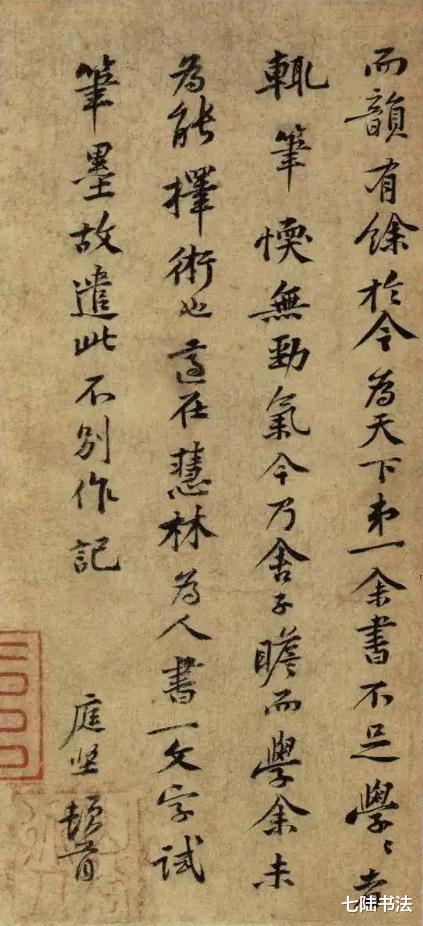 而韻有餘於今為天下第一余書不足學〻者
輒筆愞無勁氣今乃舍子瞻而學余未
為能擇術也適在慧林為人書一文字試
筆墨故遣此不別作記
庭堅頓首
七陆书法